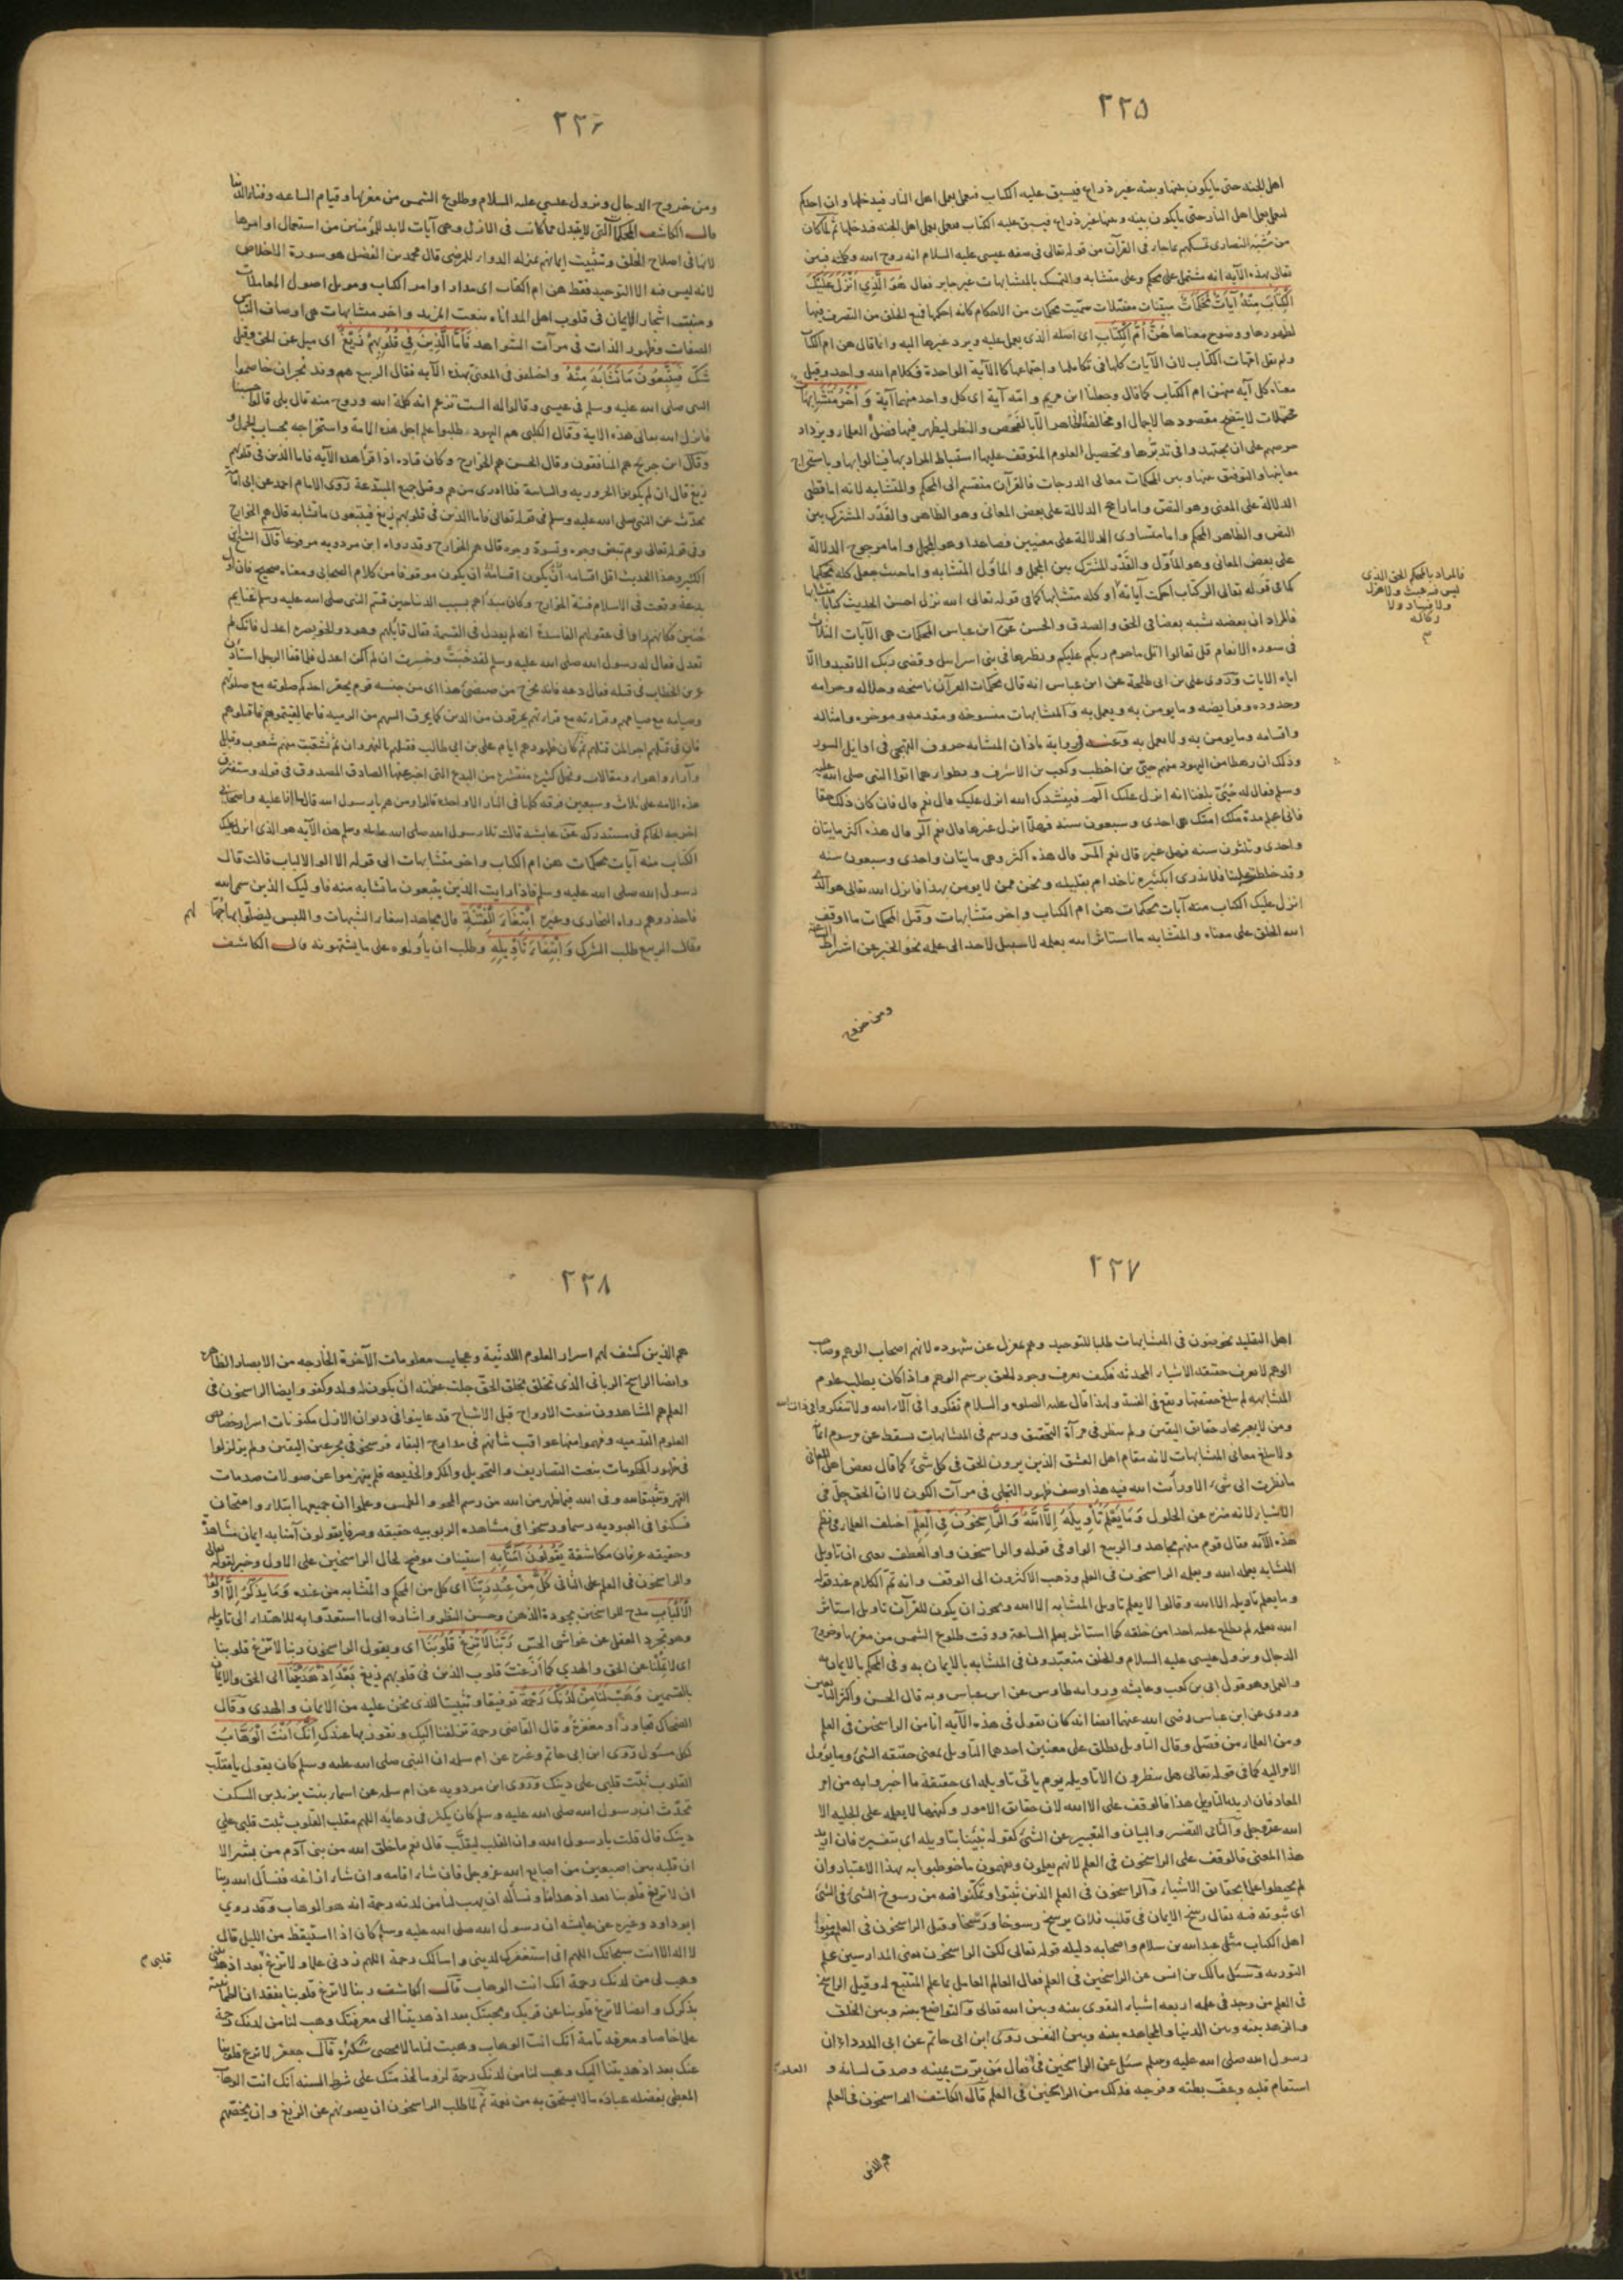 ٢٢٥
اهل الجنة حتى ما يكون بينها وبينه غير ذراع فيسبق عليه الكتاب فيعمل بعمل اهل النار فيدخلها وان احدكم
ليعمل بعمل اهل النار حتى ما يكون بينه وبينها غير ذراع فيسبق عليه الكتاب فيعمل بعمل اهل الجنه فيدخلها ثم لما كان
من شبه النصارى تمسكهم بما جاء فى القرآن من قوله تعالى فى صفه عيسى عليه السلام انه روح الله وكلمته فبين
تعالى بهذه الآية انه مشتمل على محكم وعلى متشابه والتمسك بالمتشابهات غير جايز فقال هُوَ الَّذِي اَنْزَلَ عَلَيْكَ
الْكِتَابَ مِنْهُ آيَاتٌ مُحْكَمَاتٌ مبينات مفصلات سميت محكمات من الاحكام كانه احكمها فمنع الخلق من التصرف فيها
لظهورها ووضوح معناها هُنَّ اُمُّ الْكِتَابِ اى اصله الذى يعمل عليه ويرد غيرها اليه وانما قال هن ام الكتاب
ولم يقل امهات الكتاب لان الآيات كلها فى تكاملها واجتماعها كالآية الواحدة فكلام الله واحد وقيل
معناه كل آيه منهن ام الكتاب كما قال وجعلنا ابن مريم وامه آية اى كل واحد منهما آية وَ اُخَرُ مُتَشَابِهَاتٌ
محتملات لا يتضح مقصودها لاجمال او مخالفة ظاهر الا بالفحص والنظر ليظهر فيها فضل العلماء ويزداد
حرصهم على ان يجتهدوا فى تدبرها وتحصيل العلوم المتوقف عليها استنباط المراد بها فينالوا بها وباستخراج
معانيها والتوفيق بينها وبين المحكمات معالى الدرجات فالقرآن منقسم الى المحكم والمتشابه لانه اما قطعى
الدلالة على المعنى وهو النص واما راجح الدلالة على بعض المعانى وهو الظاهر والقدر المشترك بين
النص والظاهر المحكم واما متساوى الدلالة على معنيين فصاعدا وهو المجمل واما مرجوح الدلالة
على بعض المعانى وهو المأول والقدر المشترك بين المجمل والمأول المتشابه واما حيث جعل كله محكما
كما فى قوله تعالى الر كتاب احكمت آياته او كله متشابها كما فى قوله تعالى الله نزل احسن الحديث كتابا متشابها
فالمراد ان بعضه شبه بعضا فى الحق والصدق والحسن عن ابن عباس المحكمات هى الآيات الثلاث
فى سوره الانعام قل تعالوا اتل ما حرم ربكم عليكم ونظيرها فى بنى اسرائيل وقضى ربك الا تعبدوا الا
اياه الايات وروى على بن ابى طلحة عن ابن عباس انه قال محكمات القرآن ناسخه وحلاله وحرامه
وحدوده وفرايضه وما يومن به ويعمل به والمتشابهات منسوخه ومقدمه وموخره وامثاله
واقسامه وما يومن به ولا يعمل به وعنه فى رواية باذان المتشابه حروف التهجى فى اوايل السور
وذلك ان رهطا من اليهود منهم حيى بن اخطب وكعب بن الاشرف ونظراءهما اتوا النبى صلى الله عليه
وسلم فقال له حيى بلغنا انه انزل عليك الم فننشدك الله انزل عليك قال نعم قال فان كان ذلك حقا
فانى اعلم مدة ملك امتك هى احدى وسبعون سنه فهل انزل غيرها قال نعم المص قال هذه اكثر مايتان
واحدى وثلثون سنه فهل غير قال نعم المر قال هذه اكثر وهى مايتان واحدى وسبعون سنه
وقد خلطت علينا فلا ندرى ابكثيره ناخذ ام بقليله ونحن ممن لا يومن بهذا فانزل الله تعالى هو الذى
انزل عليك الكتاب منه آيات محكمات هن ام الكتاب واخر متشابهات وقيل المحكمات ما اوقف
الله الخلق على معناه والمتشابه ما استاثر الله بعلمه لا سبيل لاحد الى علمه نحو الخبر عن اشراط الساعة
ومن خروج
فالمراد بالمحكم الحق الذى
ليس فيه عبث ولا هزل
ولا فساد ولا
ركاكه
٢٢٦
ومن خروج الدجال ونزول عيسى عليه السلام وطلوع الشمس من مغربها وقيام الساعه وفناء الدنيا
قال الكاشف المحكمات التى لا يتبدل عما كانت فى الازل وهى آيات لا بد للمؤمنين من استعمال اوامرها
لانها فى اصلاح الخلق وتثبيت ايمانهم بمنزله الدواء للمرضى قال محمد بن الفضل هو سورة الاخلاص
لانه ليس فيه الا التوحيد فقط هن ام الكتاب اى مدار اوامر الكتاب واصول المعاملات
ومنبت اشجار الايمان فى قلوب اهل المداناه بنعت المزيد واخر متشابهات هى اوصاف التباس
الصفات وظهور الذات فى مرآت الشواهد فَاَمَّا الَّذِينَ فِي قُلُوبِهِمْ زَيْغٌ اى ميل عن الحق وقيل
شك فَيَتَّبِعُونَ مَا تَشَابَهَ مِنْهُ واختلف فى المعنى بهذه الآيه فقال الربيع هم وفد نجران خاصموا
النبى صلى الله عليه وسلم فى عيسى وقالوا له الست تزعم انه كلمة الله وروح منه قال بلى قالوا حسبنا
فانزل الله تعالى هذه الاية وقال الكلبى هم اليهود طلبوا علم اجل هذه الامة واستخراجه بحساب الجمل
وقال ابن جريج هم المنافقون وقال الحسن هم الخوارج وكان قتاده اذا قرأ هذه الآيه فاما الذين فى قلوبهم
زيغ قال ان لم يكونوا الحروريه والسبائية فلا ادرى من هم وقيل جميع المبتدعة روى الامام احمد عن ابى امامة
يحدث عن النبى صلى الله عليه وسلم فى قوله تعالى فاما الذين فى قلوبهم زيغ فيتبعون ما تشابه قال هم الخوارج
وفى قوله تعالى يوم تبيض وجوه وتسود وجوه قال هم الخوارج وقد رواه ابن مردويه مرفوعا قال الشيخ ابن
الكثير وهذا الحديث اقل اقسامه ان يكون موقوفا من كلام الصحابى ومعناه صحيح فان اول
بدعة وقعت فى الاسلام فتنة الخوارج وكان مبدأهم بسبب الدنيا حين قسم النبى صلى الله عليه وسلم غنايم
حنين فكانهم راوا فى عقولهم الفاسدة انه لم يعدل فى القسمة فقال قائلهم وهو ذو الخويصره اعدل فانك لم
تعدل فقال له رسول الله صلى الله عليه وسلم لقد خبت وخسرت ان لم اكن اعدل فلما قفا الرجل استاذن
عمر بن الخطاب فى قتله فقال دعه فانه يخرج من ضئضئ هذا اى من جنسه قوم يحقر احدكم صلوته مع صلوتهم
وصيامه مع صيامهم وقراءته مع قراءتهم يمرقون من الدين كما يمرق السهم من الرميه فاينما لقيتموهم فاقتلوهم
فان فى قتلهم اجرا لمن قتلهم ثم كان ظهورهم ايام على بن ابى طالب فقتلهم بالنهروان ثم تشعبت منهم شعوب وقبائل
وآراء واهواء ومقالات ونحل كثيره منتشره من البدع التى اخبر عنها الصادق المصدوق فى قوله وستفترق
هذه الامه على ثلاث وسبعين فرقه كلها فى النار الا واحدة قالوا ومن هم يا رسول الله قال ما انا عليه واصحابى
اخرجه الحاكم فى مستدركه عن عايشه قالت تلا رسول الله صلى الله عليه وسلم هذه الآيه هو الذى انزل عليك
الكتاب منه آيات محكمات هن ام الكتاب واخر متشابهات الى قوله الا اولو الالباب قالت قال
رسول الله صلى الله عليه وسلم فاذا رايت الذين يتبعون ما تشابه منه فاوليك الذين سمى الله
فاحذروهم رواه البخارى وغيره اِبْتِغَاءَ الْفِتْنَةِ قال مجاهد ابتغاء الشبهات واللبس ليضلوا بها جهالهم
فقال الربيع طلب الشرك وَابْتِغَاءَ تَأْوِيلِهِ وطلب ان ياولوه على ما يشتهونه قال الكاشف
٢٢٧
اهل التقليد يخوضون فى المتشابهات طلبا للتوحيد وهم بمعزل عن شهوده لانهم اصحاب الوهم وصاحب
الوهم لا يعرف حقيقه الاشياء المحدثه فكيف يعرف وجود الحق برسم الوهم واذا كان يطلب علوم
المتشابه لم يبلغ حقيقتها ويقع فى الفتنة ولهذا قال عليه الصلوه والسلام تفكروا فى آلاء الله ولا تتفكروا فى ذات الله
ومن لا يعبر بحار حقائق اليقين ولم ينظر فى مرآة التحقيق ورسم فى المتشابهات يسقط عن رسوم ايمانه
ولا يبلغ معانى المتشابهات لانه مقام اهل العشق الذين يرون الحق فى كل شئ كما قال بعض اهل المعانى
ما نظرت الى شئ الا ورأيت الله فيه هذا وصف ظهور التجلى فى مرآت الكون لا ان الحق حل فى
الاشياء لانه منزه عن الحلول وَمَا يَعْلَمُ تَأْوِيلَهُ اِلَّا اللهُ وَالرَّاسِخُونَ فِي الْعِلْمِ اختلف العلماء فى نظم
هذه الآيه فقال قوم منهم مجاهد والربيع الواو فى قوله والراسخون واو العطف يعنى ان تاويل
المتشابه يعلمه الله ويعلمه الراسخون فى العلم وذهب الاكثرون الى الوقف وانه تم الكلام عند قوله
وما يعلم تاويله الا الله وقالوا لا يعلم تاويل المتشابه الا الله ويجوز ان يكون للقرآن تاويل استاثر
الله بعلمه لم يطلع عليه احدا من خلقه كما استاثر بعلم الساعة ووقت طلوع الشمس من مغربها وخروج
الدجال ونزول عيسى عليه السلام والخلق متعبدون فى المتشابه بالايمان به وفى المحكم بالايمان به
والعمل وهو قول ابى بن كعب وعايشه وروايه طاوس عن ابن عباس وبه قال الحسن واكثر التابعين
وروى عن ابن عباس رضى الله عنهما ايضا انه كان يقول فى هذه الآيه انا من الراسخين فى العلم
ومن العلماء من فصل وقال التاويل يطلق على معنيين احدهما التاويل بمعنى حقيقه الشئ وما يؤل
الامر اليه كما فى قوله تعالى هل ينظرون الا تاويله يوم ياتى تاويله اى حقيقة ما اخبروا به من امر
المعاد فان اريد بالتاويل هذا فالوقف على الا الله لان حقائق الامور وكنهها لا يعلمه على الجليه الا
الله عز وجل والثانى التفسير والبيان والتعبير عن الشئ كقوله نبئنا بتاويله اى بتفسيره فان اريد
هذا المعنى فالوقف على الراسخون فى العلم لانهم يعلمون ويفهمون ما خوطبوا به بهذا الاعتبار وان
لم يحيطوا علما بحقائق الاشياء والراسخون فى العلم الذين ثبتوا وتمكنوا فيه من رسوخ الشئ فى الشئ
اى ثبوته فيه يقال رسخ الايمان فى قلب فلان يرسخ رسوخا ورسخا وقيل الراسخون فى العلم مؤمنوا
اهل الكتاب مثل عبد الله بن سلام واصحابه دليله قوله تعالى لكن الراسخون يعنى المدارسين علم
التوريه وسئل مالك بن انس عن الراسخين فى العلم فقال العالم العامل بما علم المتتبع له وقيل الراسخ
فى العلم من وجد فى علمه اربعه اشياء التقوى بينه وبين الله تعالى والتواضع بينه وبين الخلق
والزهد بينه وبين الدنيا والمجاهده بينه وبين النفس روى ابن ابى حاتم عن ابى الدرداء ان
رسول الله صلى الله عليه وسلم سئل عن الراسخين فى العلم فقال من برت يمينه وصدق لسانه و
استقام قلبه وعف بطنه وفرجه فذلك من الراسخين فى العلم قال الكاشف الراسخون فى العلم
هم الذين
٢٢٨
هم الذين كشف لهم اسرار العلوم اللدنية وعجايب معلومات الآخرة الخارجه من الابصار الظاهره
وايضا الراسخ الربانى الذى تخلق بخلق الحق جلت عظمته ان يكون له ولد وكفو وايضا الراسخون فى
العلم هم المشاهدون بنعت الارواح قبل الاشباح قد عاينوا فى ديوان الازل مكنونات اسرار خصايص
العلوم القدميه وفهموا منها عواقب شأنهم فى مدارج البقاء فرسخوا فى بحر عين اليقين ولم يزلزلوا
فى ظهور الحكومات بنعت التصاريف والتحويل والمكر والخديعه فلم ينهزموا عن صولات صدمات
القهر وثبتهم الله وفى الله فيما ظهر من الله من رسم المحو والطمس وعلموا ان جميعها ابتلاء وامتحان
فسكنوا فى العبوديه رسما ورسخوا فى مشاهده الربوبيه حقيقه وصرفا يقولون آمنا به ايمان مشاهدة
وحقيقه عرفان مكاشفة يَقُولُونَ آمَنَّا بِهِ استيناف موضح لحال الراسخين على الاول وخبر لقوله تعالى
والراسخون فى العلم على الثانى كُلٌّ مِنْ عِنْدِ رَبِّنَا اى كل من المحكم والمتشابه من عنده وَمَا يَذَّكَّرُ اِلَّا اُولُوا
الْاَلْبَابِ مدح للراسخين بجودة الذهن وحسن النظر واشاره الى ما استعدوا به للاهتداء الى تاويله
وهو تجرد العقل عن غواشى الحس رَبَّنَا لَا تُزِغْ قُلُوبَنَا اى ويقول الراسخون ربنا لا تزغ قلوبنا
اى لا تملنا عن الحق والهدى كما ازغت قلوب الذين فى قلوبهم زيغ بَعْدَ اِذْ هَدَيْتَنَا الى الحق والايمان
بالقسمين وَهَبْ لَنَا مِنْ لَدُنْكَ رَحْمَةً توفيقا وتثبيتا للذى نحن عليه من الايمان والهدى وقال
الضحاك تجاوزا ومغفرة وقال القاضى رحمة تزلفنا اليك ونفوز بها عندك اِنَّكَ اَنْتَ الْوَهَّابُ
لكل مسئول روى ابن ابى حاتم وغيره عن ام سلمه ان النبى صلى الله عليه وسلم كان يقول يا مقلب
القلوب ثبت قلبى على دينك وروى ابن مردويه عن ام سلمه عن اسماء بنت يزيد بن السكن
تحدث ان رسول الله صلى الله عليه وسلم كان يكثر فى دعايه اللهم مقلب القلوب ثبت قلبى على
دينك قال قلت يا رسول الله وان القلب ليقلب قال نعم ما خلق الله من بنى آدم من بشر الا
ان قلبه بين اصبعين من اصابع الله عز وجل فان شاء اقامه وان شاء ازاغه فنسأل الله ربنا
ان لا تزيغ قلوبنا بعد اذ هدانا ونسأله ان يهب لنا من لدنه رحمة انه هو الوهاب وقد روى
ابو داود وغيره عن عايشه ان رسول الله صلى الله عليه وسلم كان اذا استيقظ من الليل قال
لا اله الا انت سبحانك اللهم انى استغفرك لذنبى واسالك رحمة اللهم زدنى علما ولا تزغ قلبى بعد اذ هديتنى
وهب لى من لدنك رحمة انك انت الوهاب قال الكاشف ربنا لا تزغ قلوبنا بفقدان الطمانينة
بذكرك وايضا لا تزغ قلوبنا عن قربك ومحبتك بعد اذ هديتنا الى معرفتك وهب لنا من لدنك رحمة
علما خاصا ومعرفه تامة انك انت الوهاب وهبت لنا ما لا يحصى شكره قال جعفر لا تزغ قلوبنا
عنك بعد اذ هديتنا اليك وهب لنا من لدنك رحمة لزوما لخدمتك على شرط السنه انك انت الوهاب
المعطى بفضله عباده ما لا يستحق به من نعمة ثم لما طلب الراسخون ان يصونهم عن الزيغ وان يخصهم